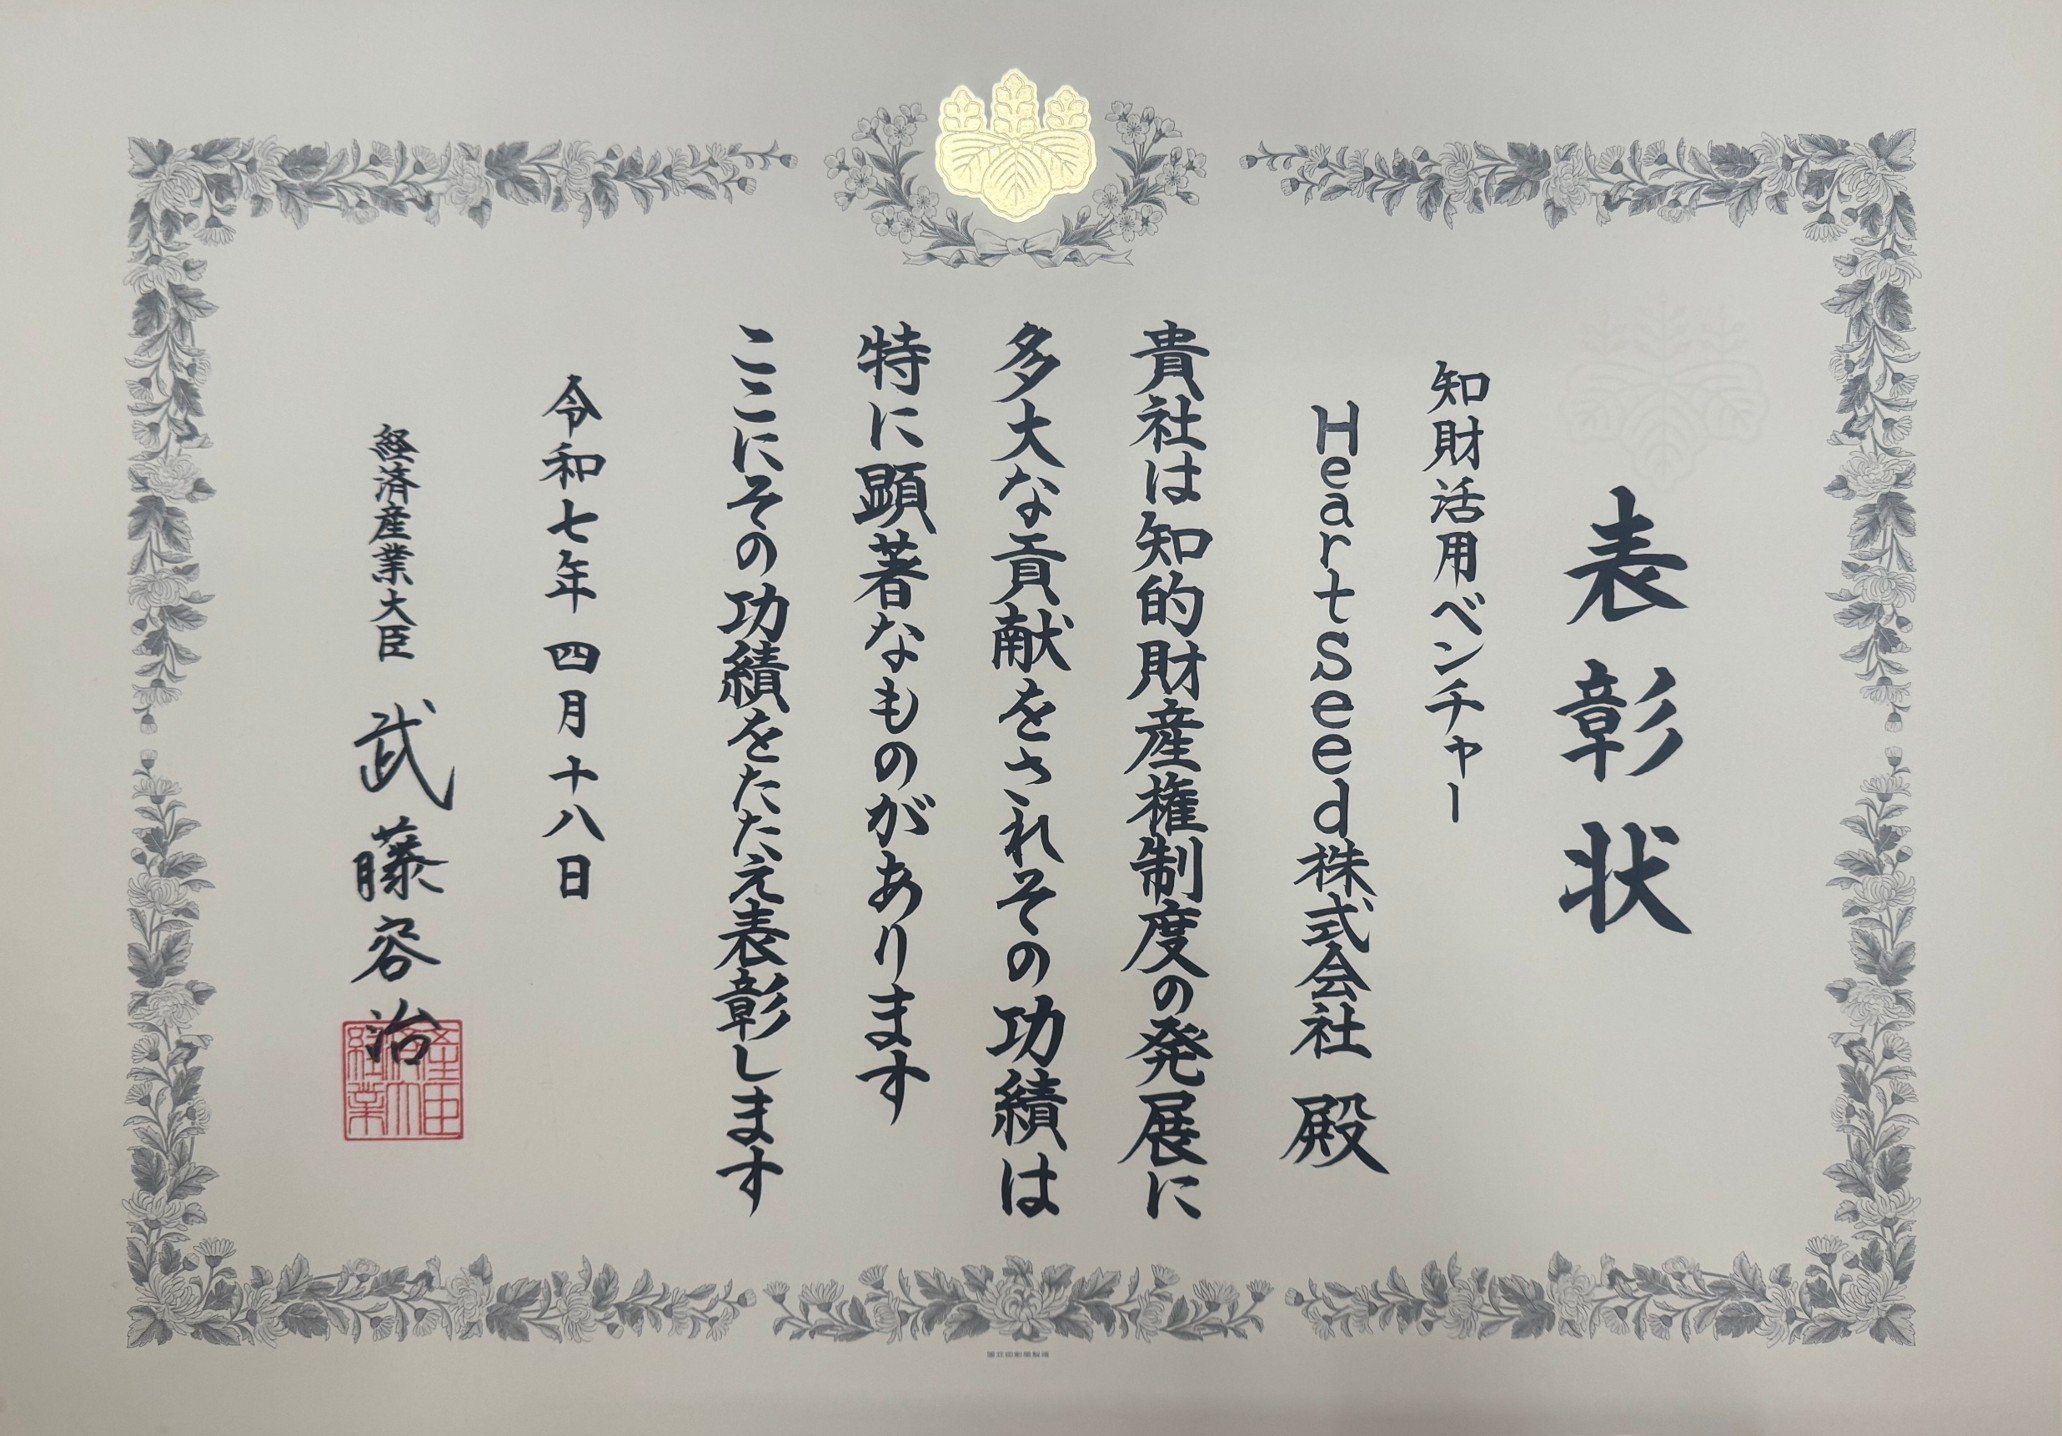 表彰状
知財活用ベンチャー
Heartseed株式会社 殿
貴社は知的財産権制度の発展に
多大な貢献をされその功績は
特に顕著なものがあります
ここにその功績をたたえ表彰します
令和七年 四月 十八日
経済産業大臣 武藤容治